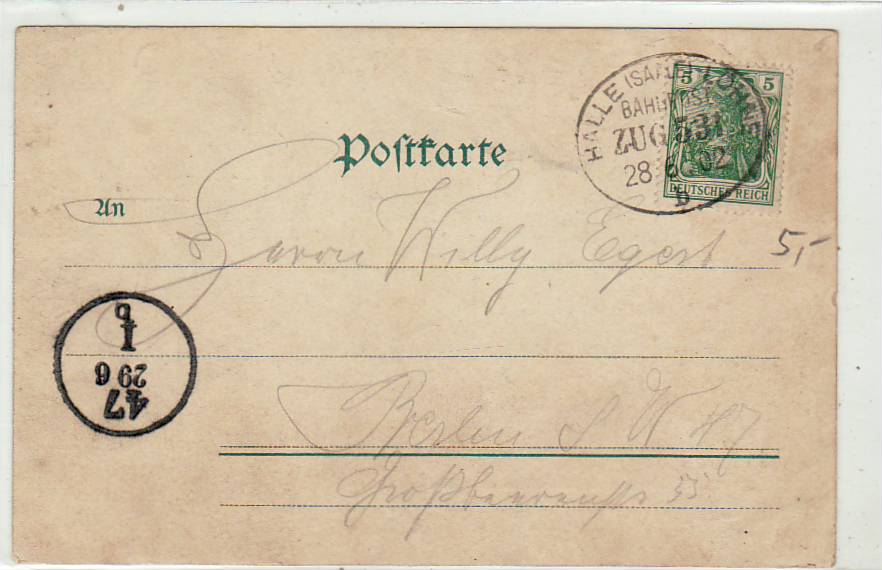 HALLE (SAALE) LÖHNE
BAHNPOST
ZUG 531
28 6 02
b
5 5
DEUTSCHES REICH
Postkarte
An
Herrn Willy Egert
5,-
47
29 6
I
b
Berlin S W 47
Großbeerenstr 55